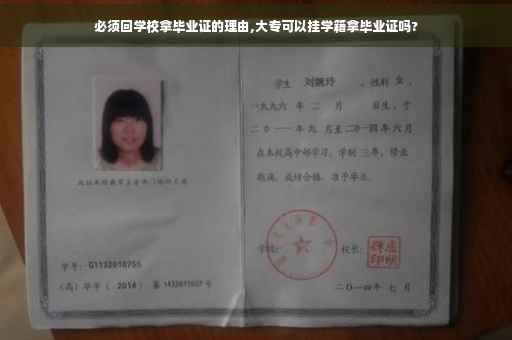 必须回学校拿毕业证的理由,大专可以挂学籍拿毕业证吗?
学生 刘婉玲 ，性别 女 ，
一九九六 年 二 月 日生，于
二〇一一 年 九 月至 二〇一四 年 六 月
在本校高中部学习，学制 三 年，修业
期满，成绩合格，准予毕业。
学号： G1132010755
(高) 毕字 ( 2014 ) 第 1432011027 号
学校：
校长：
二〇一四年 七 月